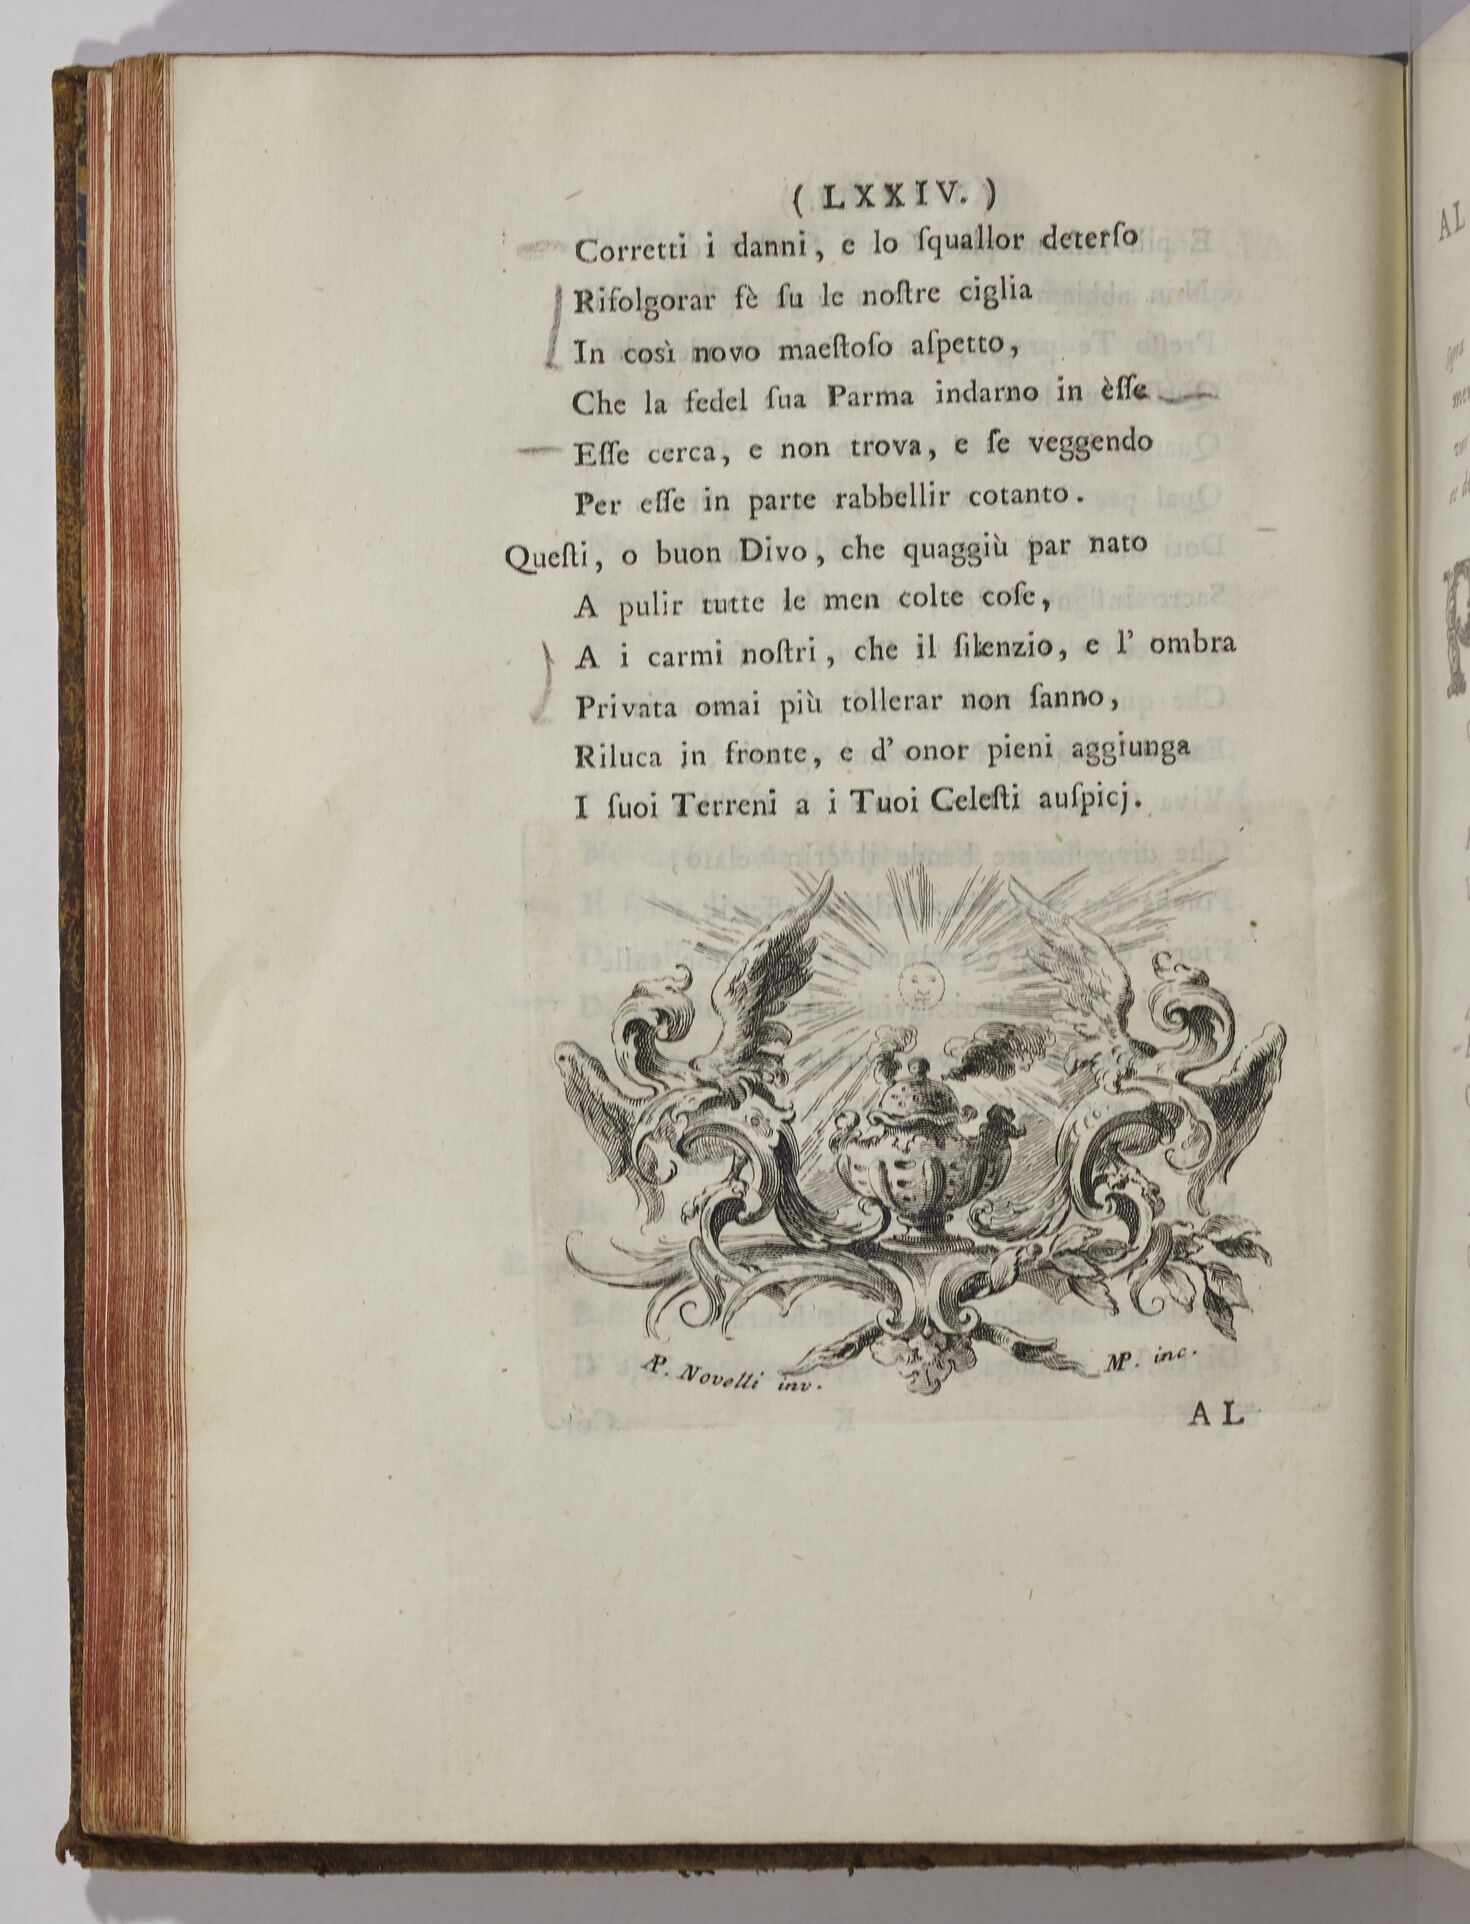 ( LXXIV. )
Corretti i danni, e lo ſquallor deterſo
Rifolgorar fè ſu le noſtre ciglia
In così novo maeſtoſo aſpetto,
Che la fedel ſua Parma indarno in èſſe
Eſſe cerca, e non trova, e ſe veggendo
Per eſſe in parte rabbellir cotanto.
Queſti, o buon Divo, che quaggiù par nato
A pulir tutte le men colte coſe,
A i carmi noſtri, che il ſilenzio, e l' ombra
Privata omai più tollerar non ſanno,
Riluca in fronte, e d' onor pieni aggiunga
I ſuoi Terreni a i Tuoi Celeſti auſpicj.
AP. Novelli inv.
MP. inc.
AL
AL